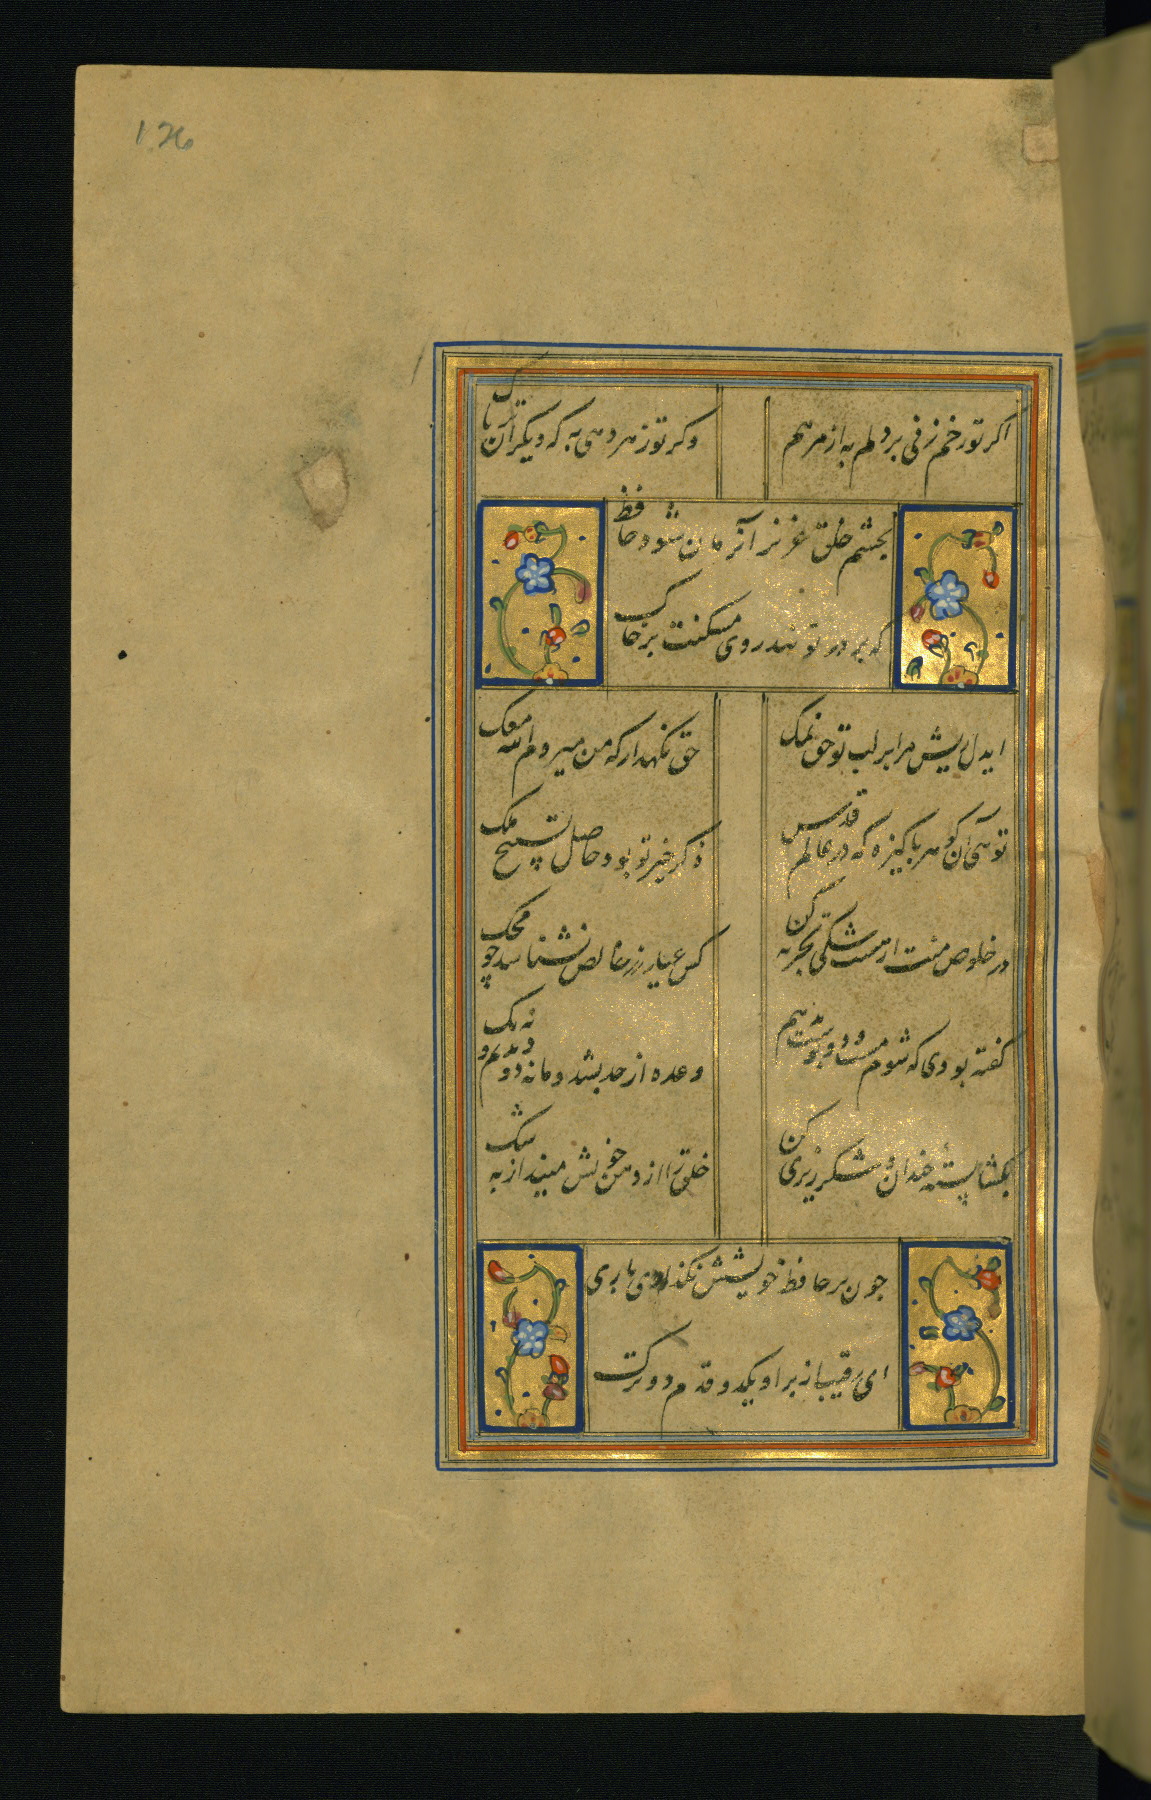 126
اکر تو زخم زنی بر دلم به از مرهم
وکر تو زهر دهی به که دیگران تریاک
بچشم خلق عزیز آنزمان شود حافظ
که بر در تو نهد روی مسکنت بر خاک
ایدل ریش مرا بر لب تو حق نمک
حق نکهدار که من میروم الله معک
توئی آن کوهر پاکیزه که در عالم قدس
ذکر خیر تو بود حاصل تسبیح ملک
در خلوص منت ار هست شکی تجربه کن
کس عیار زر خالص نشناسد چو محک
کفته بودی که شوم مست و دو بوست بدهم
وعده از حد بشد و ما نه دو دیدیم و نه یک
بکشا پسته خندان و شکر ریزی کن
خلق را از دهن خویش مینداز به شک
چون بر حافظ خویشش نکذاری باری
ای رقیب از بر او یکدو قدم دورترک